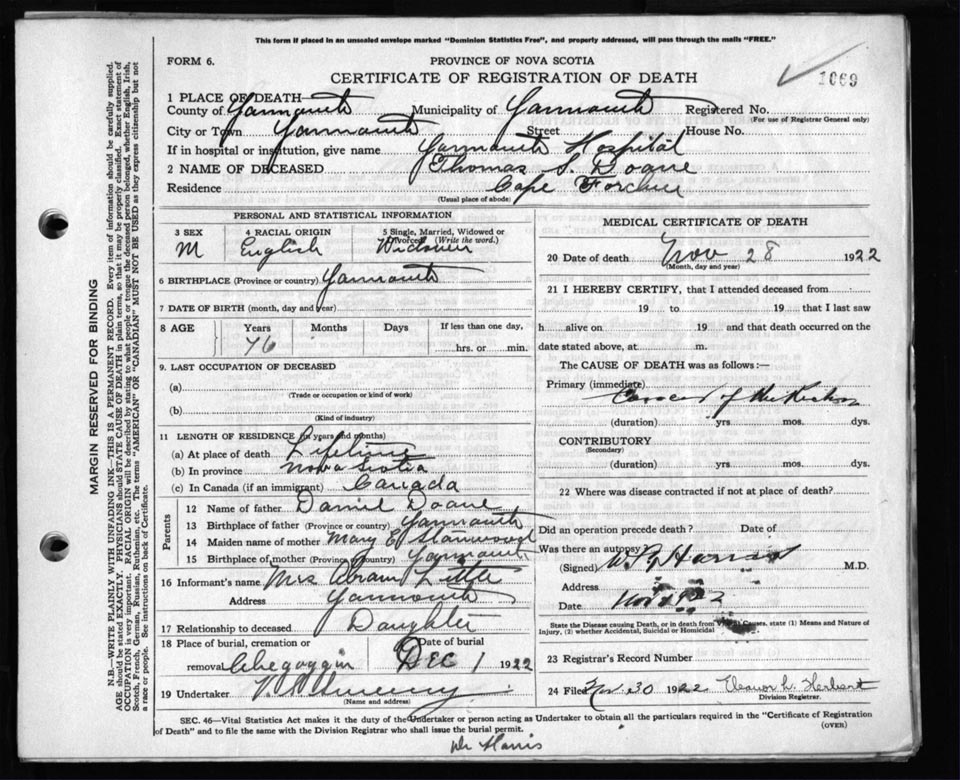 This form if placed in an unsealed envelope marked "Dominion Statistics Free", and properly addressed, will pass through the mails "FREE."
FORM 6.
PROVINCE OF NOVA SCOTIA
CERTIFICATE OF REGISTRATION OF DEATH
1669
1 PLACE OF DEATH—
County of Yarmouth Municipality of Yarmouth Registered No.
(For use of Registrar General only)
City or Town Yarmouth Street House No.
If in hospital or institution, give name Yarmouth Hospital
2 NAME OF DECEASED Thomas S. Doane
Residence Cape Forchu
(Usual place of abode)
PERSONAL AND STATISTICAL INFORMATION
3 SEX 4 RACIAL ORIGIN 5 Single, Married, Widowed or Divorced (Write the word.)
M English Widower
6 BIRTHPLACE (Province or country) Yarmouth
7 DATE OF BIRTH (month, day and year)
8 AGE Years Months Days If less than one day,
76 hrs. or min.
9. LAST OCCUPATION OF DECEASED
(a)
(Trade or occupation or kind of work)
(b)
(Kind of industry)
11 LENGTH OF RESIDENCE (in years and months)
(a) At place of death Lifetime
(b) In province Nova Scotia
(c) In Canada (if an immigrant) Canada
Parents
12 Name of father Daniel Doane
13 Birthplace of father (Province or country) Yarmouth
14 Maiden name of mother Mary E Stanwood
15 Birthplace of mother (Province or country) Yarmouth
16 Informant's name Mrs Abram
Address Yarmouth
17 Relationship to deceased Daughter
18 Place of burial, cremation or removal Chegoggin Date of burial DEC 1 1922
19 Undertaker
(Name and address)
MEDICAL CERTIFICATE OF DEATH
20 Date of death Nov 28 1922
(Month, day and year)
21 I HEREBY CERTIFY, that I attended deceased from
19 to 19 that I last saw
h alive on 19 and that death occurred on the
date stated above, at m.
The CAUSE OF DEATH was as follows:—
Primary (immediate)
Cancer of the
(duration) yrs mos. dys.
CONTRIBUTORY
(Secondary)
(duration) yrs. mos. dys.
22 Where was disease contracted if not at place of death?
Did an operation precede death? Date of
Was there an autopsy?
(Signed) M.D.
Address
Date
State the Disease causing Death, or in death from Violent Causes, state (1) Means and Nature of
Injury, (2) whether Accidental, Suicidal or Homicidal
23 Registrar's Record Number
24 Filed Nov. 30 1922 Eleanor L. Herbert
Division Registrar.
SEC. 46—Vital Statistics Act makes it the duty of the Undertaker or person acting as Undertaker to obtain all the particulars required in the "Certificate of Registration
of Death" and to file the same with the Division Registrar who shall issue the burial permit.
(OVER)
Dr Harris
MARGIN RESERVED FOR BINDING
N.B.—WRITE PLAINLY WITH UNFADING INK—THIS IS A PERMANENT RECORD. Every item of information should be carefully supplied.
AGE should be stated EXACTLY. PHYSICIANS should STATE CAUSE OF DEATH in plain terms, so that it may be properly classified. Exact statement of
OCCUPATION is very important. RACIAL ORIGIN will be described by stating to what people or tongue the deceased person belonged, whether English, Irish,
Scotch, French, German, Russian, Ruthenian, etc. The terms "AMERICAN" OR "CANADIAN" MUST NOT BE USED as they express citizenship but not
a race or people. See instructions on back of Certificate.